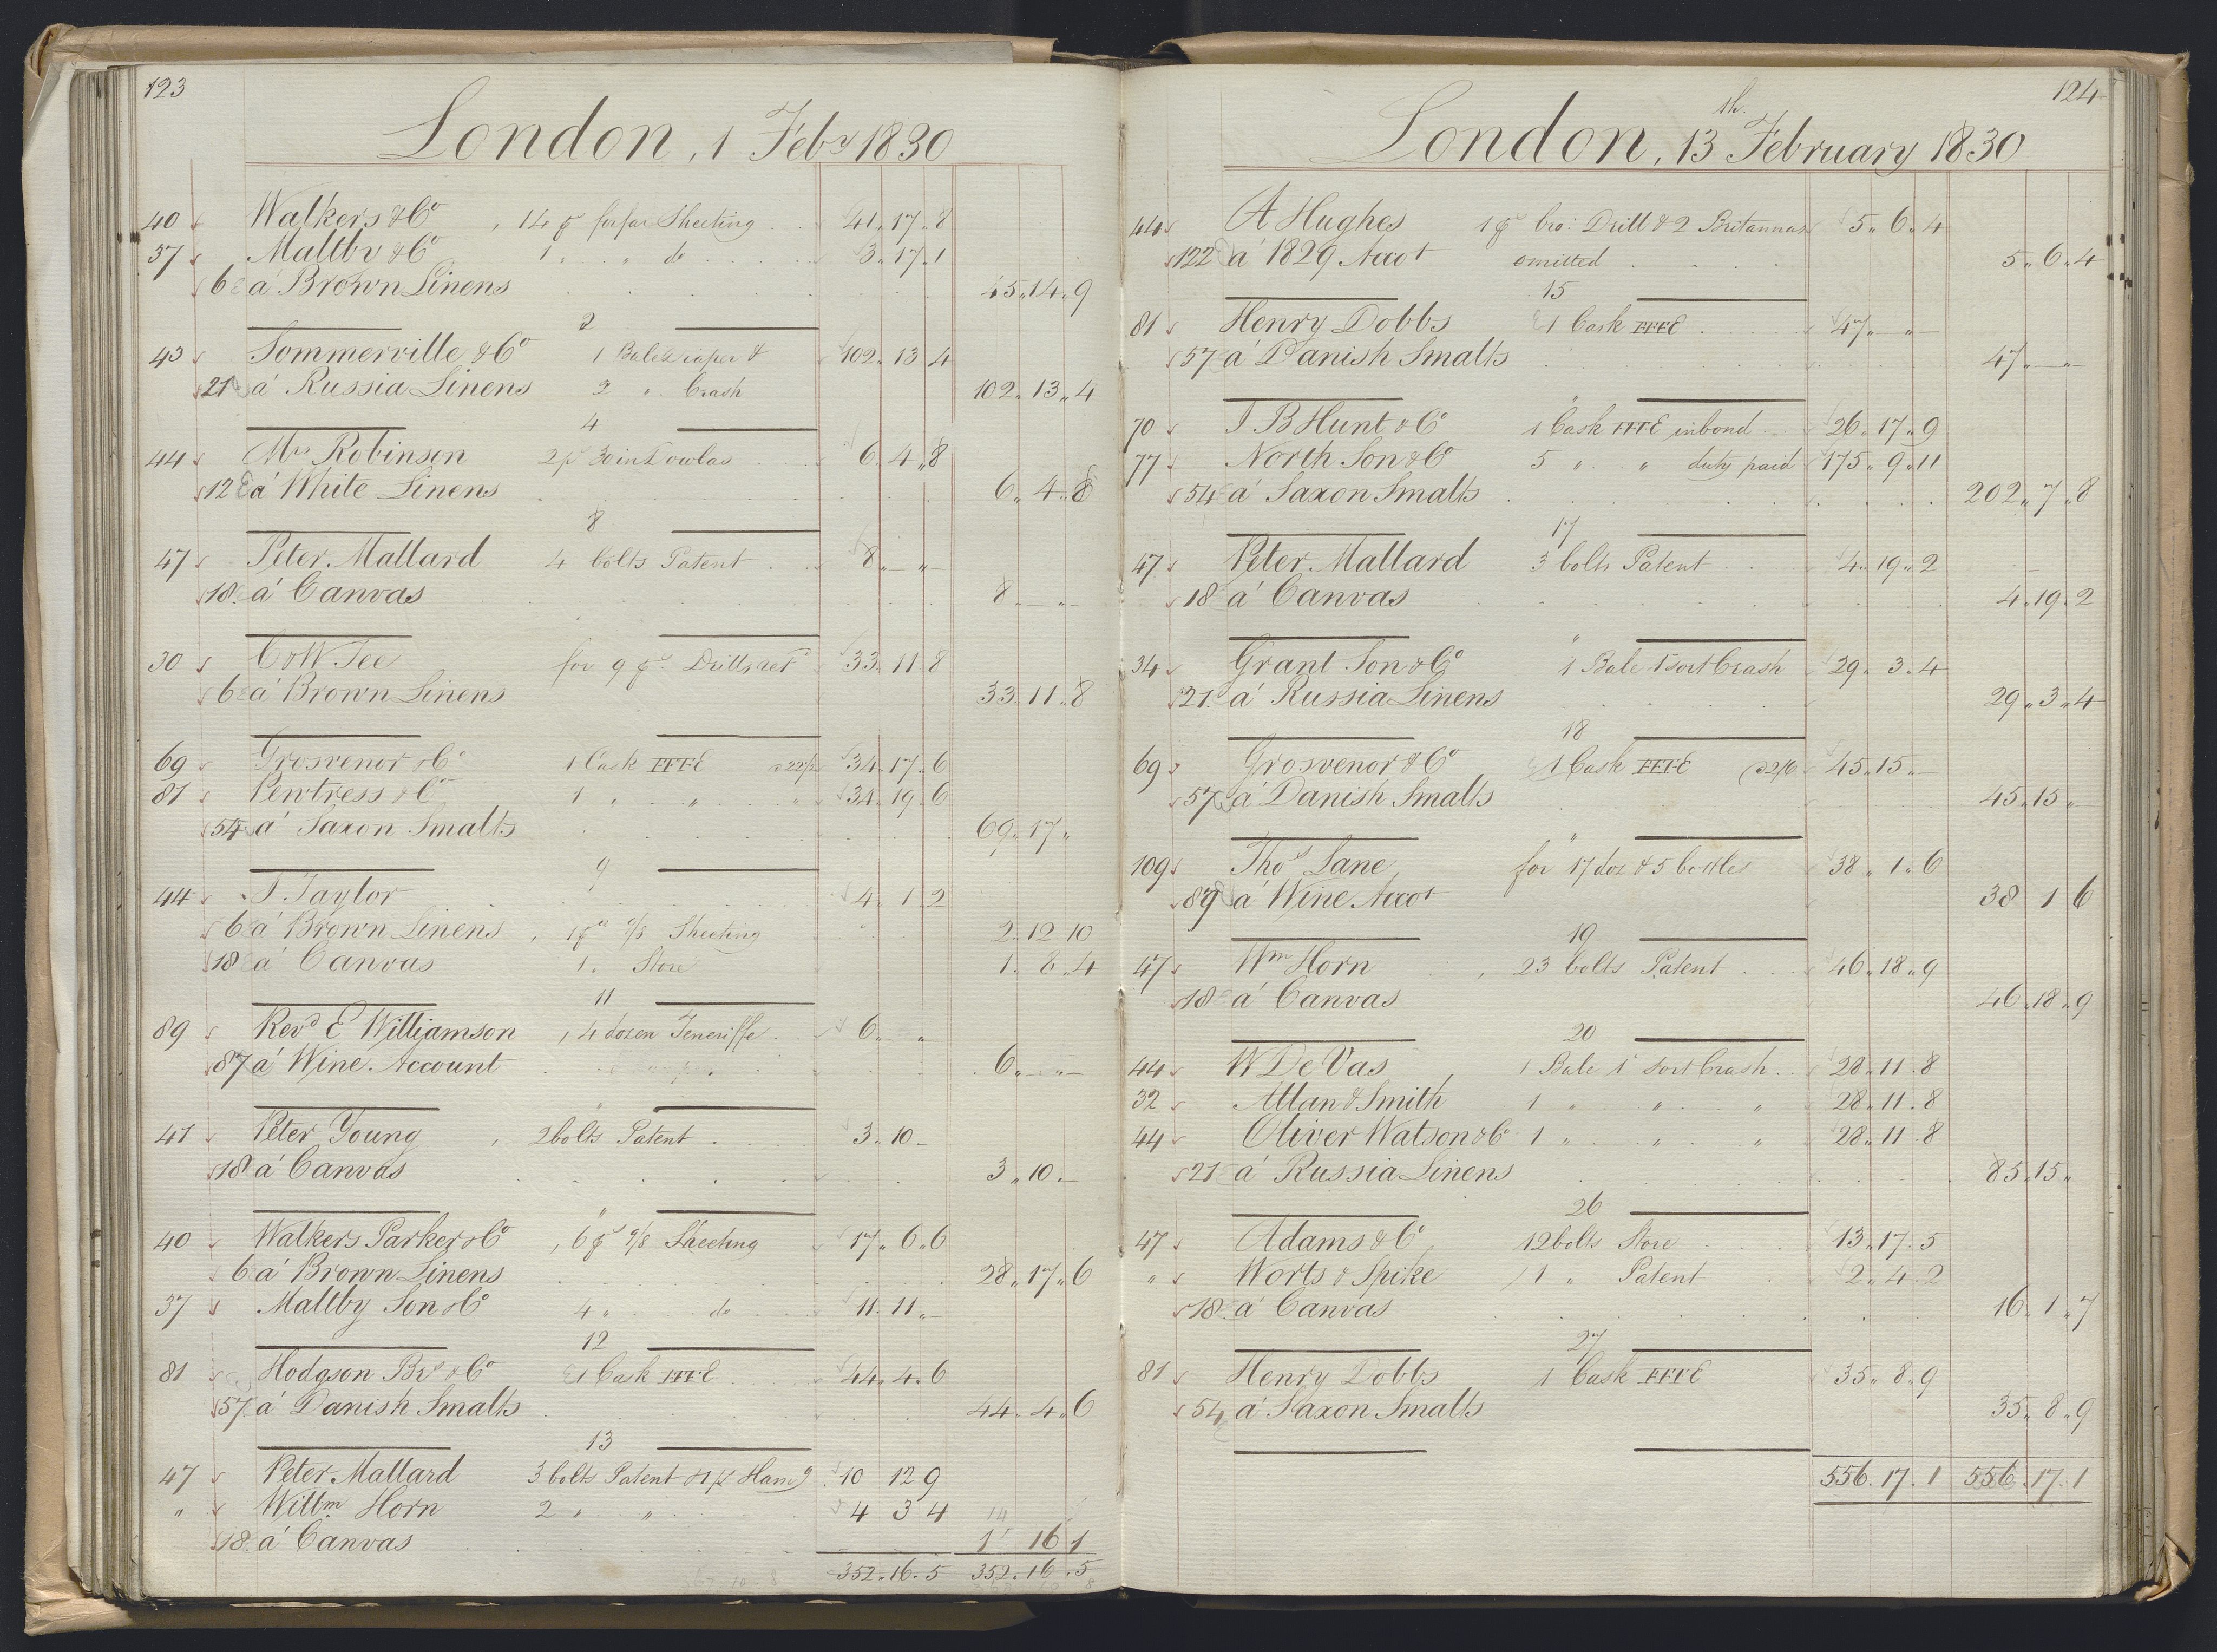 123
London, 1 Feby 1830
40 Walkers & Co, 14 ps forfar Sheeting 41. 17. 8
37 Maltby & Co 1 " " do 3. 17. 1
6 á Brown Linens 45. 14. 9
2
43 Sommerville & Co 1 Bale Diaper & 102. 13. 4
21 á Russia Linens 2 " Crash 102. 13. 4
4
44 Mrs Robinson 2 ps 30 in Dowlas 6. 4. 8
12 á White Linens 6. 4. 8
8
47 Peter Mallard 4 bolts Patent 8. — " —
18 á Canvas 8. — " —
30 C & W Tee for 9 ps Drills 33. 11. 8
6 á Brown Linens 33. 11. 8
69 Grosvenor & Co 1 Cask FFFE 34. 17. 6
81 Pewtress & Co 1 " " " 34. 19. 6
54 á Saxon Smalts 69. 17 "
9
44 J Taylor 4. 1 2
6 á Brown Linens, 1 ps Sheeting 2. 12 10
18 á Canvas 1 " Store 1. 8. 4
11
89 Revd E Williamson, 4 dozen Teneriffe 6. — " —
87 á Wine Account 6. — " —
"
47 Peter Young, 2 bolts Patent 3. 10 —
18 á Canvas 3. 10. —
"
40 Walkers Parker & Co, 6 ps Sheeting 17. 6. 6
6 á Brown Linens 28. 17. 6
37 Maltby Son & Co 4 " do 11. 11. —
12
81 Hodgson Brs & Co 1 Cask FFFE 44. 4. 6
57 á Danish Smalts 44. 4. 6
13
47 Peter Mallard 3 bolts Patent & 1 ps 10 12 9
" Willm Horn 2 " " 4 3 4
18 á Canvas 14 16 1
352. 16. 5 352. 16. 5
124
London, 13th February 1830
44 A Hughes 1 ps bro: Drill & 2 Britannas 5. 6. 4
122 á 1829 Accot omitted 5. 6. 4
15
81 Henry Dobbs 1 Cask FFFE 47. — " —
57 á Danish Smalts 47. — " —
"
70 T B Hunt & Co 1 Cask FFFE in bond 26. 17. 9
77 North Son & Co 5 " " duty paid 175. 9. 11
54 á Saxon Smalts 202. 7. 8
17
47 Peter Mallard 3 bolts Patent 4. 19. 2
18 á Canvas 4. 19. 2
"
34 Grant Son & Co 1 Bale 1 sort Crash 29. 3. 4
21 á Russia Linens 29. 3. 4
18
69 Grosvenor & Co 1 Cask FFFE @ 2/6 45. 15. —
57 á Danish Smalts 45. 15 "
"
109 Thos Lane for 17 doz & 5 bottles 38. 1. 6
87 á Wine Accot 38 1 6
19
47 Wm Horn, 23 bolts Patent 46. 18. 9
18 á Canvas 46. 18. 9
20
44 W De Vas 1 Bale 1 sort Crash 28. 11. 8
32 Allan & Smith 1 " " " 28. 11. 8
44 Oliver Watson & Co 1 " " " 28. 11. 8
21 á Russia Linens 85. 15 "
26
47 Adams & Co 12 bolts Store 13. 17. 5
" Worts & Spike 1 " Patent 2. 4. 2
18 á Canvas 16. 1. 7
27
81 Henry Dobbs 1 Cask FFFE 35. 8. 9
54 á Saxon Smalts 35. 8. 9
556. 17. 1 556. 17. 1